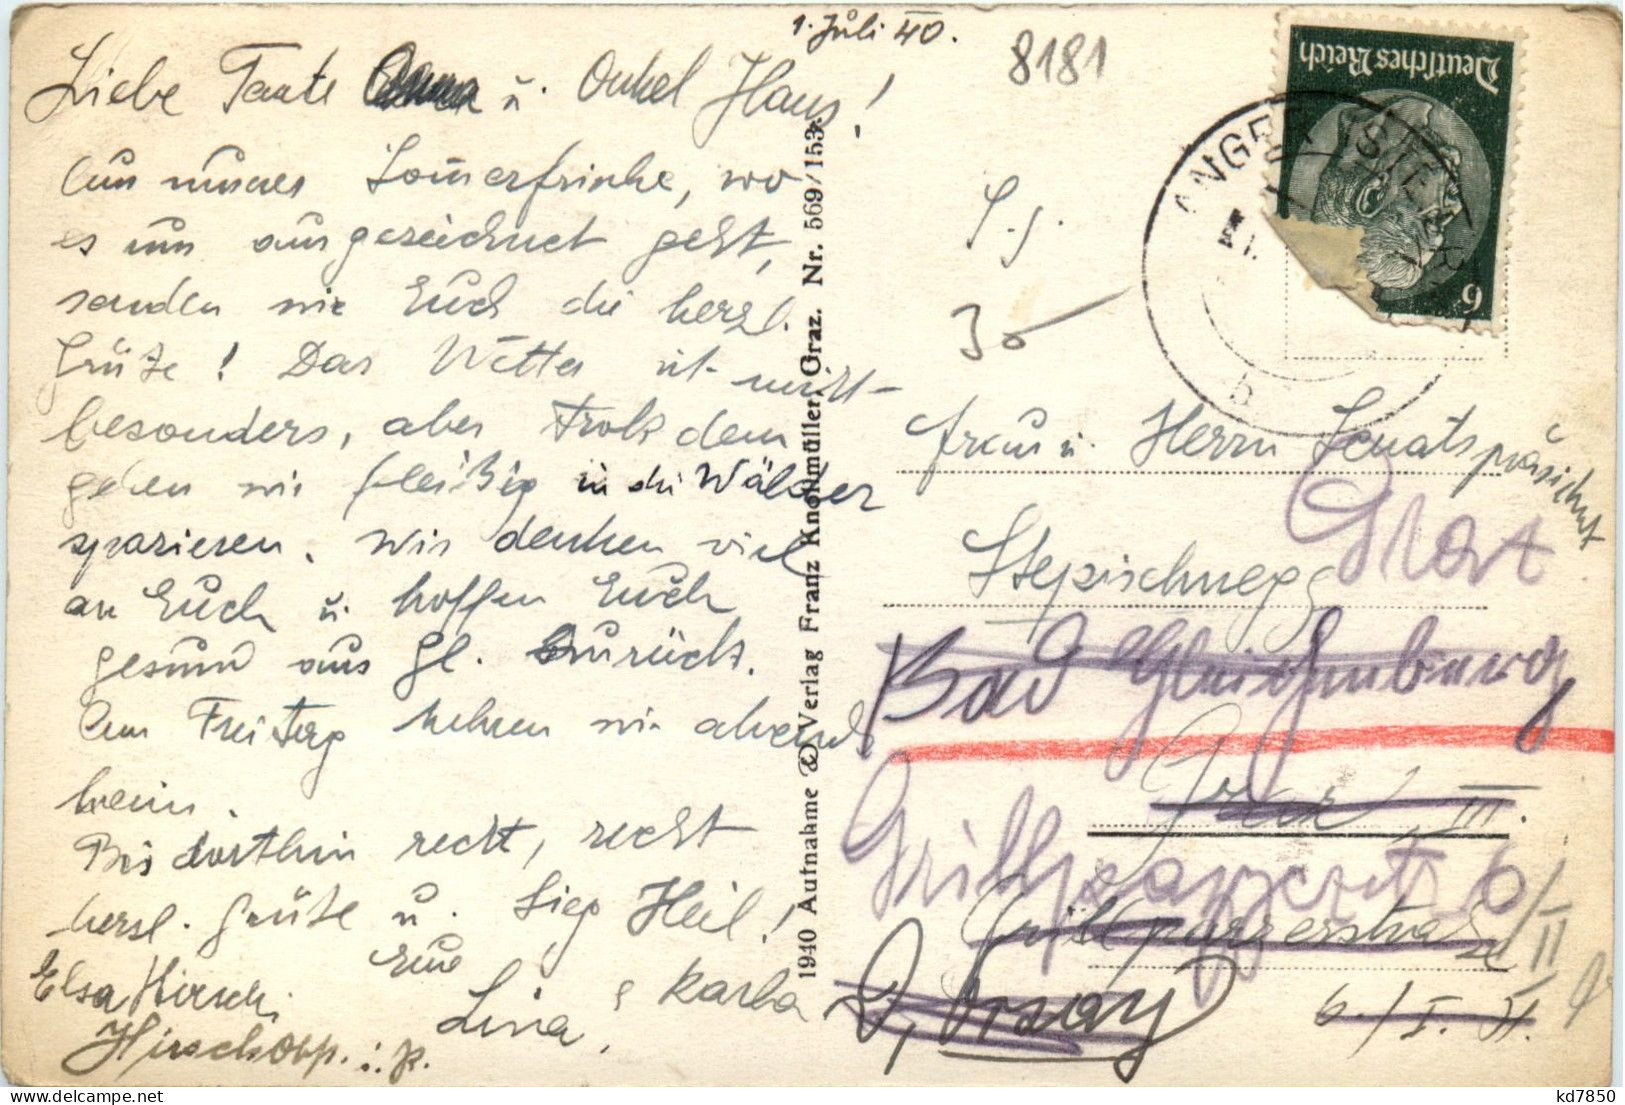 1. Juli 40.
8181
Liebe Tante u. Onkel Hans!
Aus unserer Somerfrische, wo
es uns ausgezeichnet geht,
senden wir Euch die herzl.
Grüße! Das Wetter ist nicht
besonders, aber trotzdem
gehen wir fleißig in die Wälder
spazieren. Wir denken viel
an Euch u. hoffen Euch
gesund aus Gl. zurück.
Am Freitag kehren wir abends
heim.
Bis dorthin recht, recht
herzl. Grüße u. Sieg Heil!
Eure
Elsa Hirsch
Lina, Karla
Hirsch Obp. i. R.
1940 Aufnahme & Verlag Franz Knollmüller, Graz. Nr. 569/153.
Deutsches Reich
6
ANGER (STEIERM
b
Frau u. Herrn Senatspräsident
Stepischnegg
Graz
Bad Gleichenberg
Graz, III.
Grillparzerstr 6/II
Grillparzerstraße
6./I. St.
kd7850